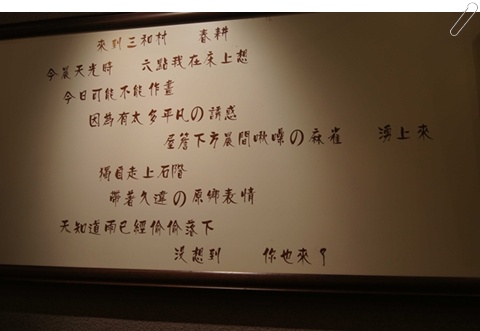 來到三和村 春耕
今晨天光時 六點我在床上想
今日可能不能作畫
因為有太多平凡の誘惑
屋簷下方晨間啾噪の麻雀 湧上來
獨自走上石階
帶著久違の原鄉表情
天知道雨已經偷偷落下
沒想到 你也來了